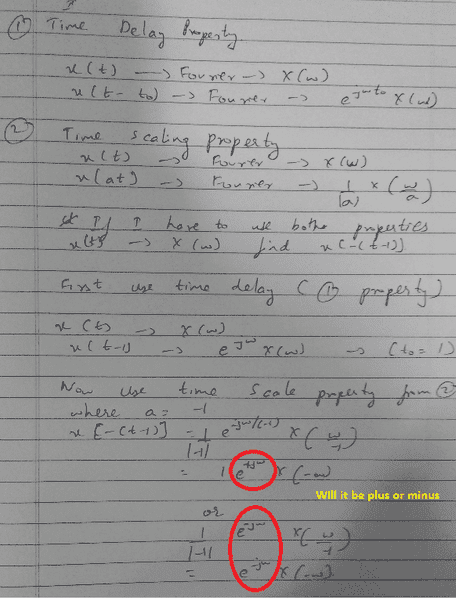 ① Time Delay Property
x(t) ⟶ Fourier → X(ω)
x(t-t₀) → Fourier → e^{jωt₀} X(ω)
② Time scaling property
x(t) → Fourier → X(ω)
x(at) → Fourier → 1/|a| X(ω/a)
If I have to use bothe properties
x(t) → X(ω) find x[-(t-1)]
First use time delay (① property)
x(t) → X(ω)
x(t-1) → e^{-jω} X(ω) → (t₀=1)
Now use time scale property from ②
where a= -1
x[-(t-1)] = 1/|-1| e^{-jω/(-1)} X(ω/-1)
= 1 e^{+jω} X(-ω)
Will it be plus or minus
or
1/|-1| e^{-jω} X(ω/-1)
= e^{-jω} X(-ω)